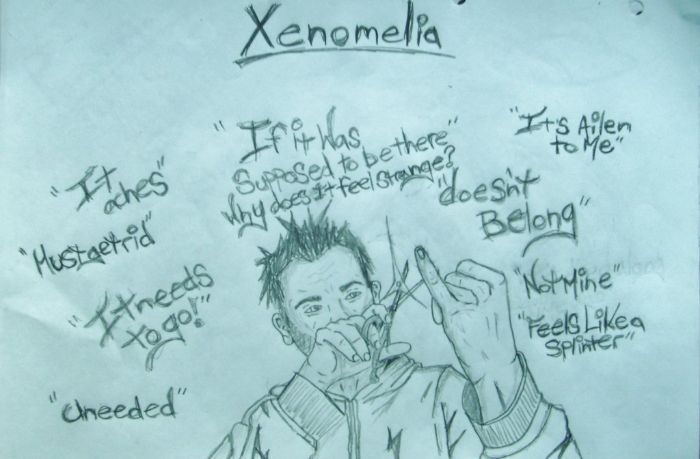 Xenomelia
"It
aches"
"Must get rid"
"It needs
to go!"
"Uneeded"
"If it Was
Supposed to be there"
Why does It feel Strange?
"It's Ailen
to Me"
"doesn't
Belong"
"Not Mine"
"Feels Like a
Splinter"